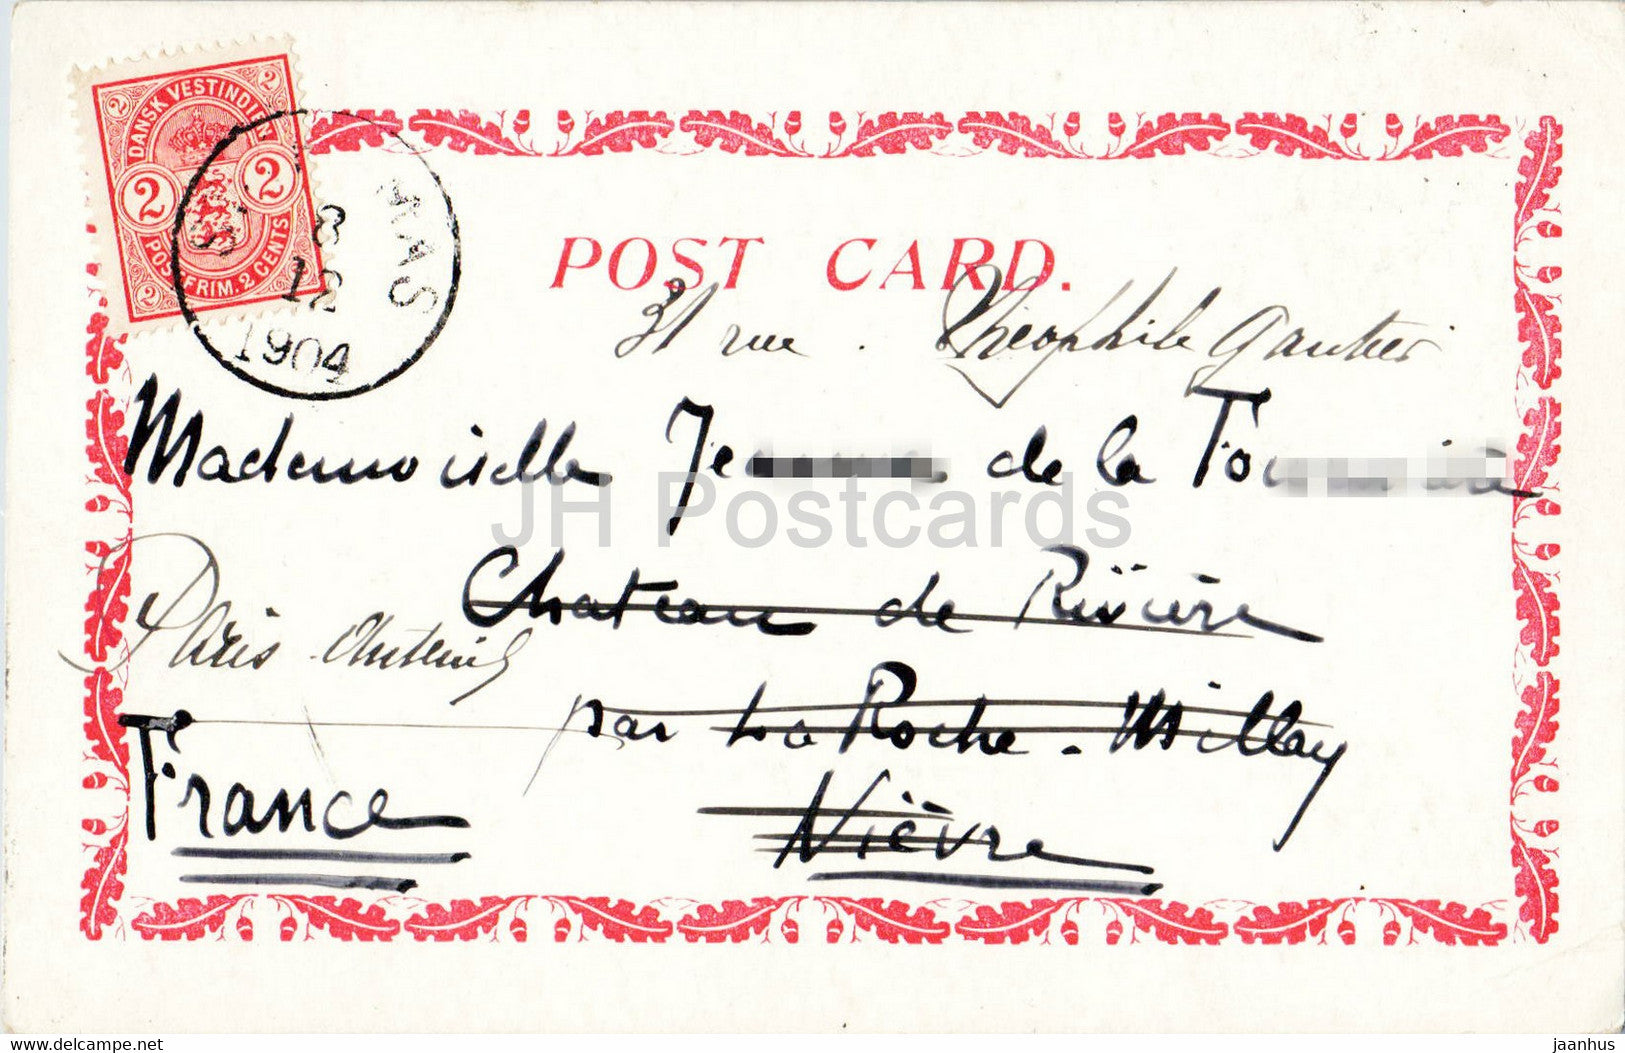 DANSK VESTINDIEN
2 2 2 2
POSTFRIM. 2 CENTS
8
12
1904
POST CARD.
31 rue . Théophile Gautier
Mademoiselle de la
JH Postcards
Chateau de Rivière
Paris Auteuil
par La Roche - Millay
France
Nièvre
delcampe.net
jaanhus